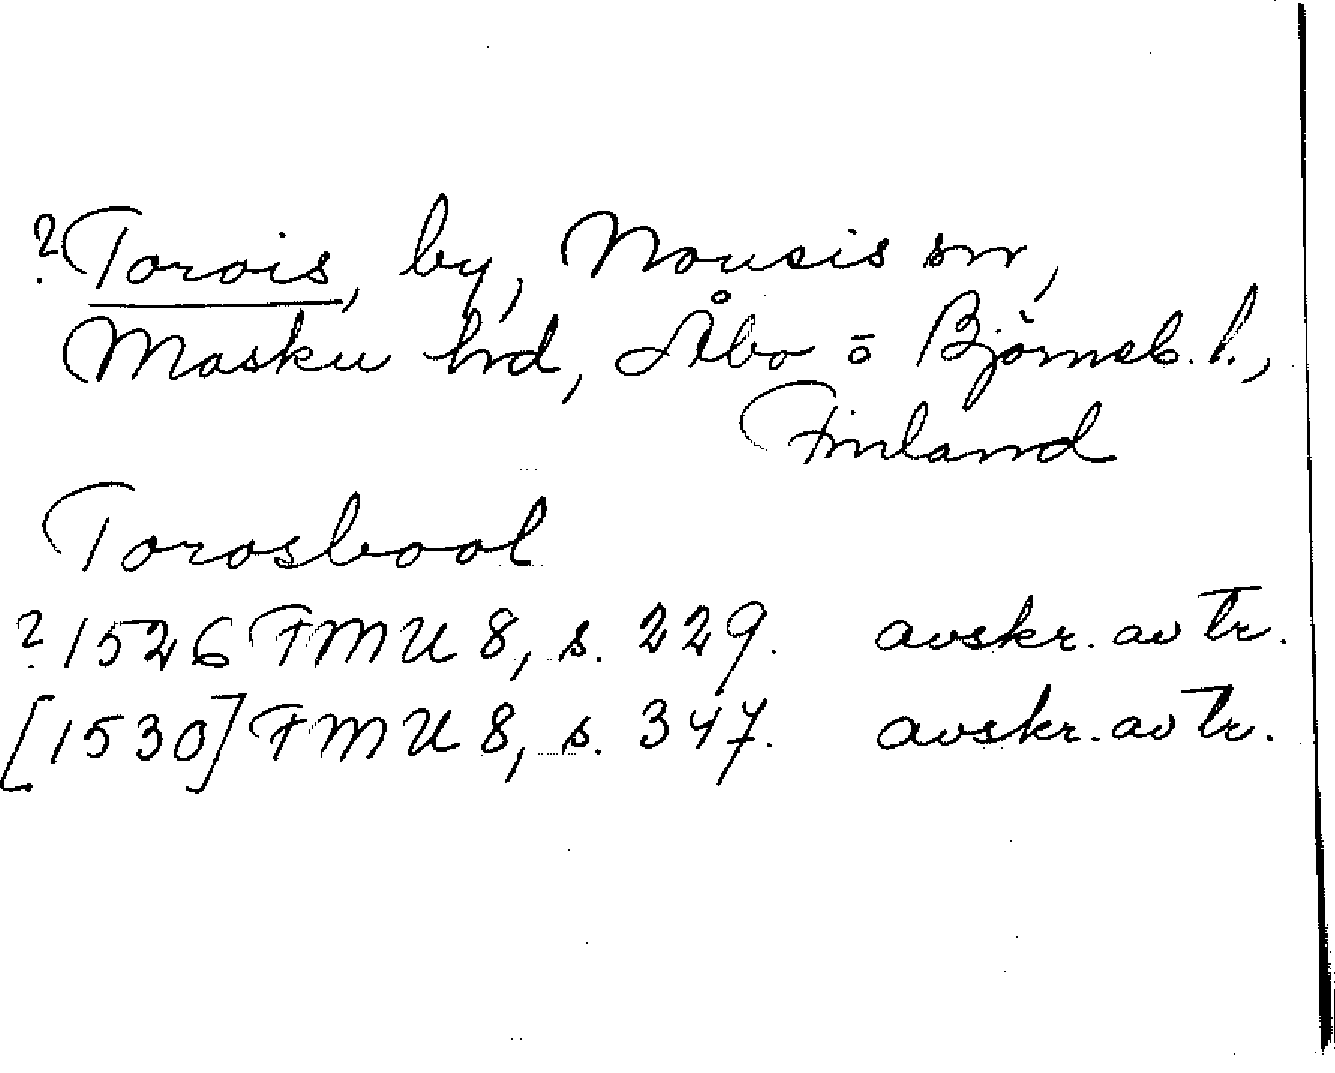 ?Torois, by, Nousis sn,
Masku hd, Åbo o Björneb. l.,
Finland
Torosbool
?1526 FMU 8, s. 229. avskr. av tr.
[1530] FMU 8, s. 347. avskr. av tr.